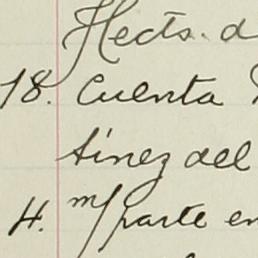 Hects. d
18. Cuenta
tínez del
4. m/parte en